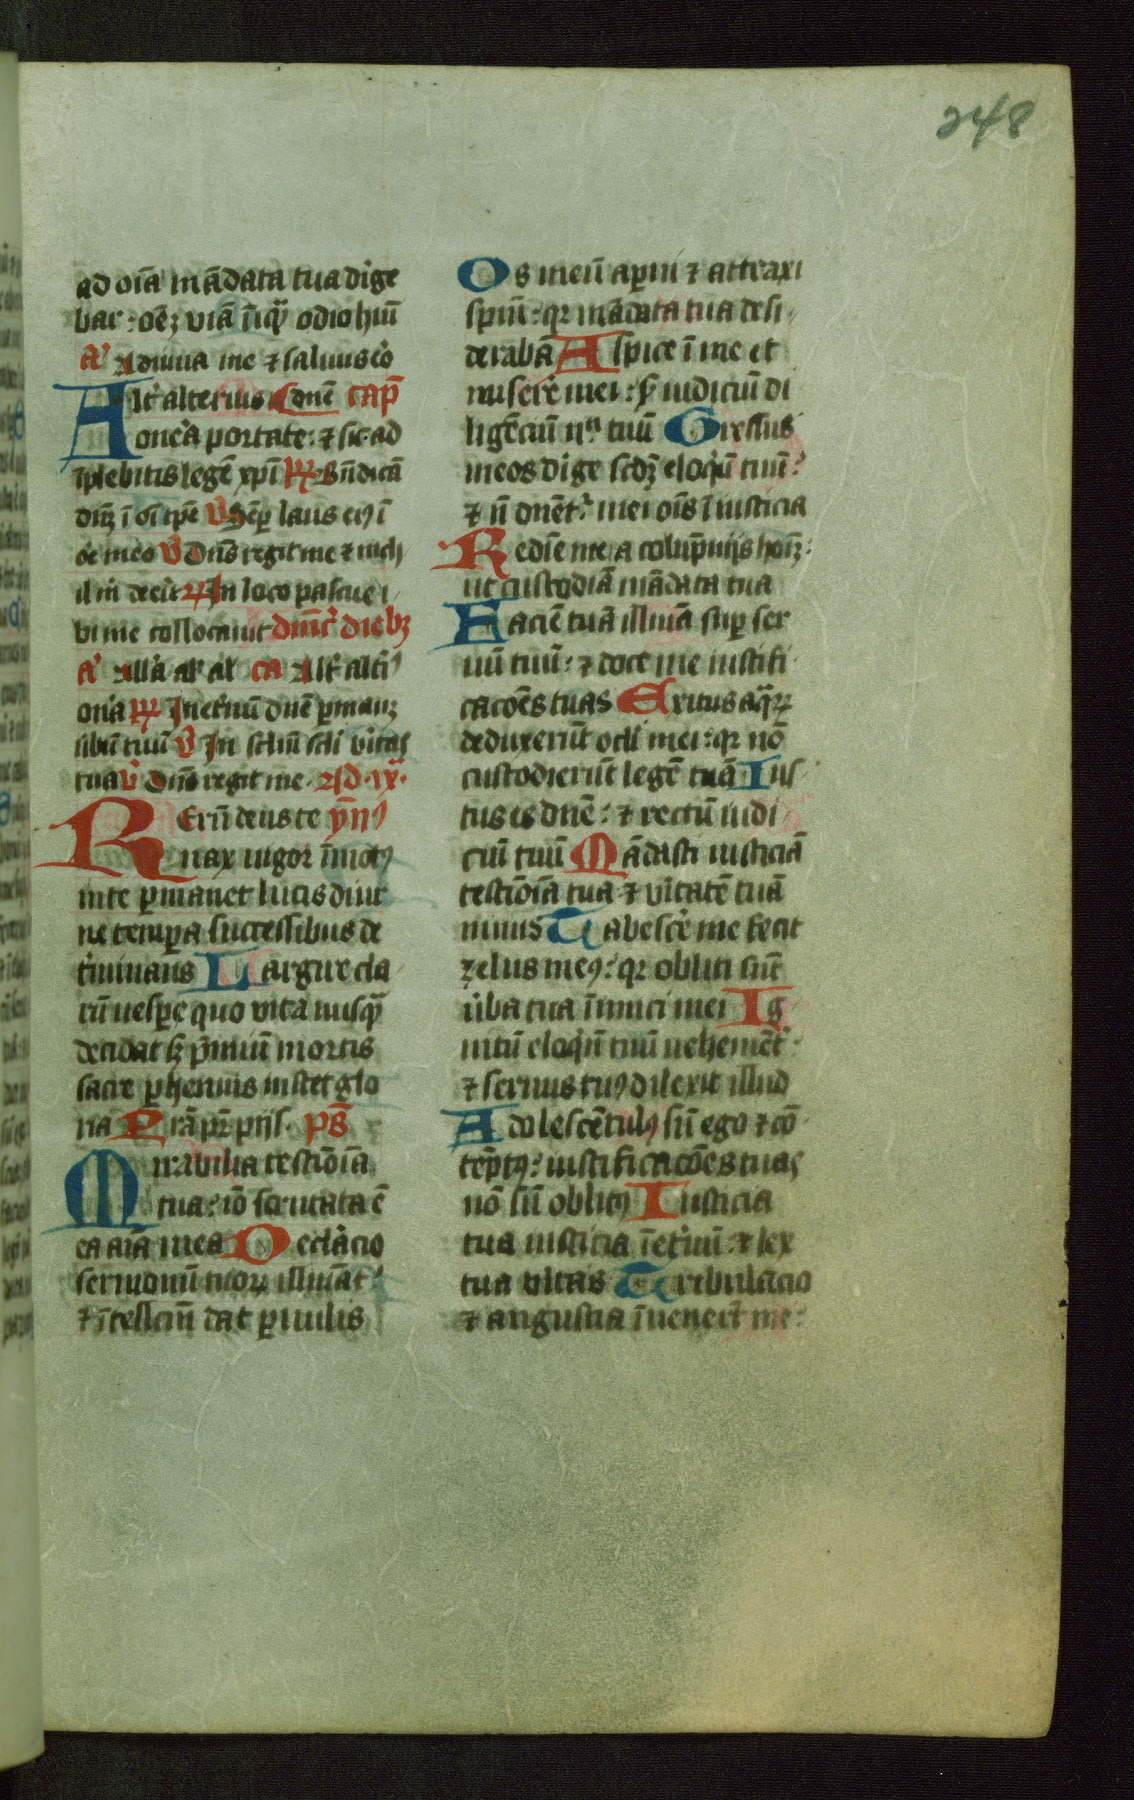 248
ad oīa mādata tua dige
bar: oēʒ viā īiqͣ odio hūi
a᷎ Adiuua me ⁊ saluus eͦo
Alt᷎ alterius onē cap̄
on᷎a portate: ⁊ sic ad
īplebitis legē xp̄i ꝶ Bn̄dicā
dn̄ʒ ī oī tp̄e v̄ Sēꝑ laus eiꝰ ī
oe meo v̄ Dn̄s regit me ⁊ nich
il m̄ deerit ꝶ In loco pascue i
bi me collocauit dn̄ic᷎ diebʒ
a᷎ Alla al̓ al̓ ca Alt᷎ alti᷎
on᷎a ꝶ Inet᷎nū dn̄e ꝑmanʒ
ūbū tuū v̄ In sclm̄ scli v᷎itas
tua v̄ Dn̄s regit me. Ad .ix.
Rerū deus te ȳnꝰ
nax uigor īmotꝰ
inte ꝑmanet lucis diur
ne tempa successibus de
t᷎minans Largire cla
rū uesꝑe quo vita nusqͣ
decidat sʒ p̄miū mortis
sacre ꝑhennis instet glo
ria Prā pr̄ pijs. ps̄
Mirabilia testiōia
tua: iō scrutata ē
ea aīa mea Declaͣcio
sermonū tuoꝝ illumāt:
⁊ ītellcm̄ dat ꝑuulis
Os meū aꝑui ⁊ attraxi
spm̄: qꝛ mādata tua desi
derabā Aspice ī me et
miserē mei: sͫ iudiciū di
ligēciū nͫ tuū Gressus
meos dige scdʒ eloqͥū tuū:
⁊ n̄ dnēt᷎ mei oīs īiusticia
Redīe me a calūpnijs hoīʒ:
ut custodiā mādata tua
Faciē tuā illumā suꝑ ser
uū tuū: ⁊ doce me iustifi
cacōes tuas Exitus aqͣꝝ
deduxerūt ocl̓i mei: qꝛ nō
custodierūt legē tuā Ius
tus es dn̄e: ⁊ rectū iudi
ciū tuū Mādasti iusticiā
testiōia tua ⁊ v᷎itatē tuā
nimis Tabescē me fecit
zelus meꝰ: qꝛ obliti sūt
ūba tua īimici mei Ig
nitū eloqͥū tuū uehemēt᷎:
⁊ seruus tuꝰ dilexit illud
Adolescētulꝰ sū ego ⁊ cō
tēptꝰ: iustificacōes tuas
nō sū oblitꝰ Iusticia
tua iusticia īet᷎nū: ⁊ lex
tua v᷎itas Tribulacio
⁊ angustia īuenert̄ me: